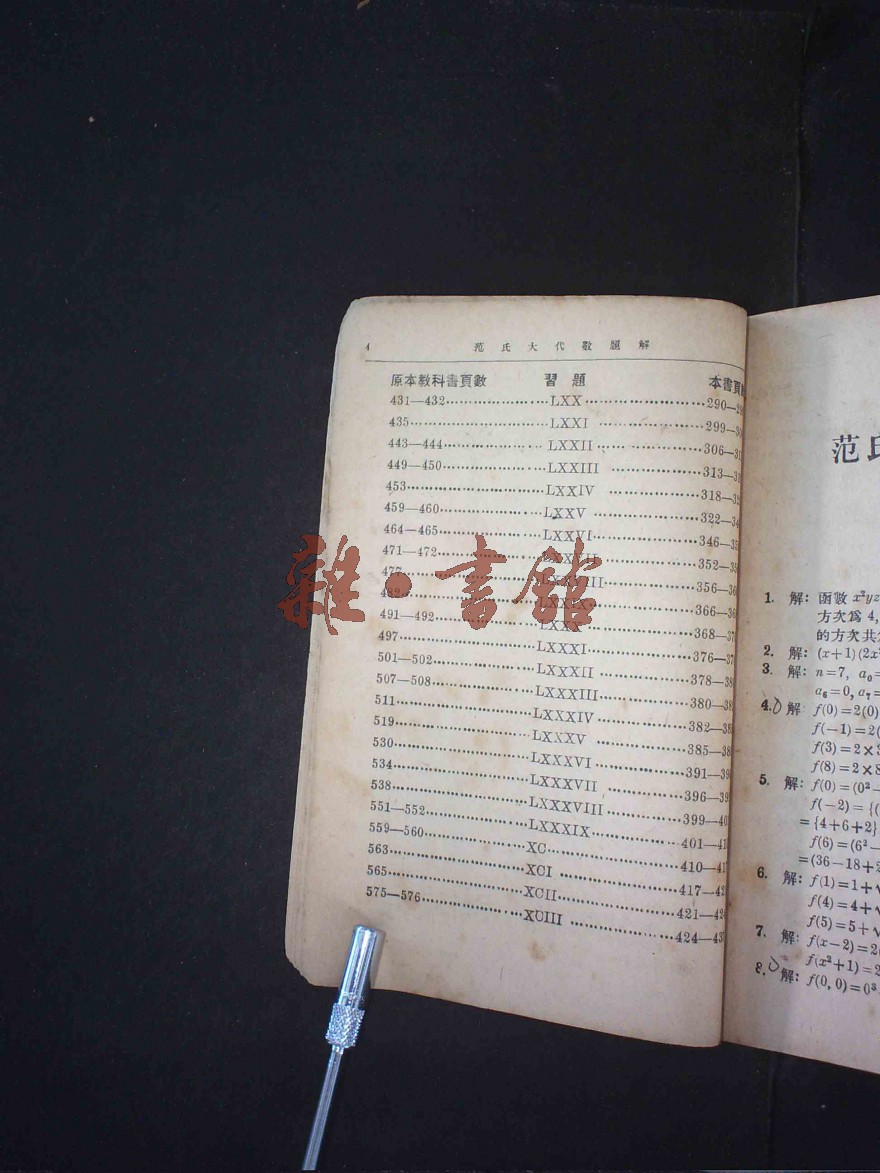 4 范氏大代數題解
原本教科書頁數 習題 本書頁
431—432 LXX 290—2
435 LXXI 299—3
443—444 LXXII 306—3
449—450 LXXIII 313—3
453 LXXIV 318—32
459—460 LXXV 322—34
464—465 LXXVI 346—35
471—472 352—35
477 356—36
366—36
491—492 368—37
497 LXXXI 376—37
501—502 LXXXII 378—38
507—508 LXXXIII 380—38
511 LXXXIV 382—38
519 LXXXV 385—38
530 LXXXVI 391—39
534 LXXXVII 396—39
538 LXXXVIII 399—40
551—552 LXXXIX 401—41
559—560 XC 410—41
563 XCI 417—42
565 XCII 421—42
575—576 XCIII 424—43
雜·書館
范氏
1. 解: 函數 x²yz
方次爲 4,
的方次共
2. 解: (x+1)(2x²
3. 解: n=7, a₀=
a₆=0, a₇=
4. 解 f(0)=2(0)
f(−1)=2(
f(3)=2×3
f(8)=2×8
5. 解: f(0)=(0²−
f(−2)={(
={4+6+2}
f(6)=(6²−
=(36−18+2
6. 解: f(1)=1+√
f(4)=4+√
f(5)=5+√
7. 解: f(x−2)=2(
f(x²+1)=2
8. 解: f(0,0)=0³